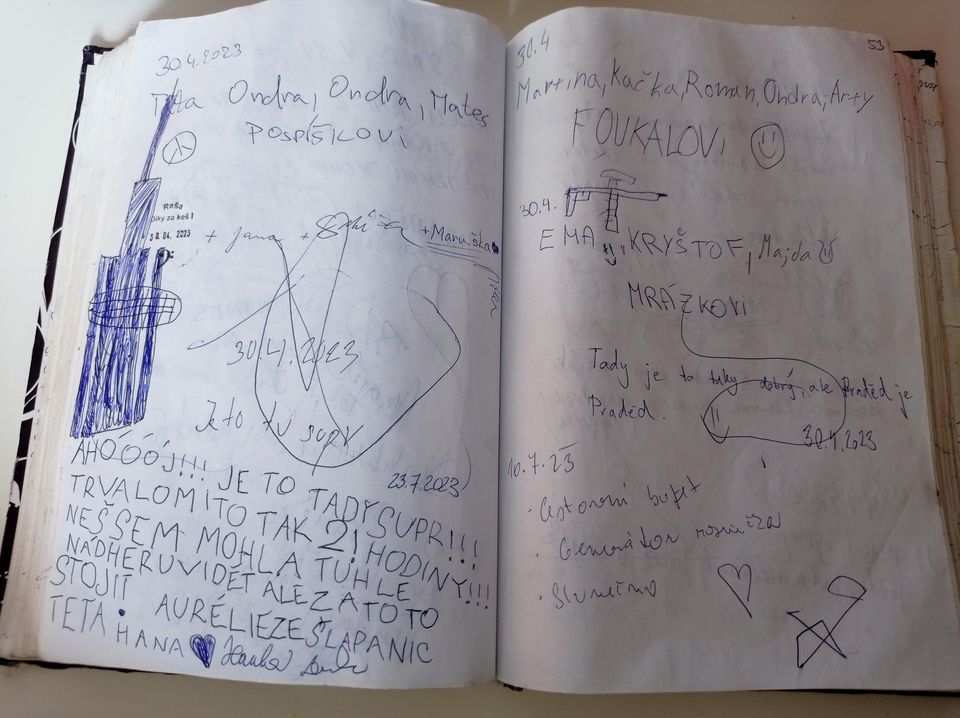 30.4.2023
Ondra, Ondra, Mates
POSPÍŠILOVI
Raša
Díky za keš!
30. 04. 2023
+ Jana + + Maruška
30.4.2023
Je to tu supr
23.7.2023
AHÓÓÓJ!!! JE TO TADY SUPR!!!
TRVALO MI TO TAK 2! HODINY!!!
NEŠ SEM MOHLA TUHLE
NÁDHERU VIDĚT ALE ZA TO TO
STOJÍ!
AURÉLIE ZE ŠLAPANIC
TETA HANA
53
30.4
Martina, Kačka, Roman, Ondra, Arty
FOUKALOVI
30.4.
EMA, KRYŠTOF, Majda
MRÁZKOVI
Tady je to taky dobrý, ale Praděd je
Praděd.
30.4.2023
10.7.23
· Cestovní bufet
· Generátor
· Slunečno